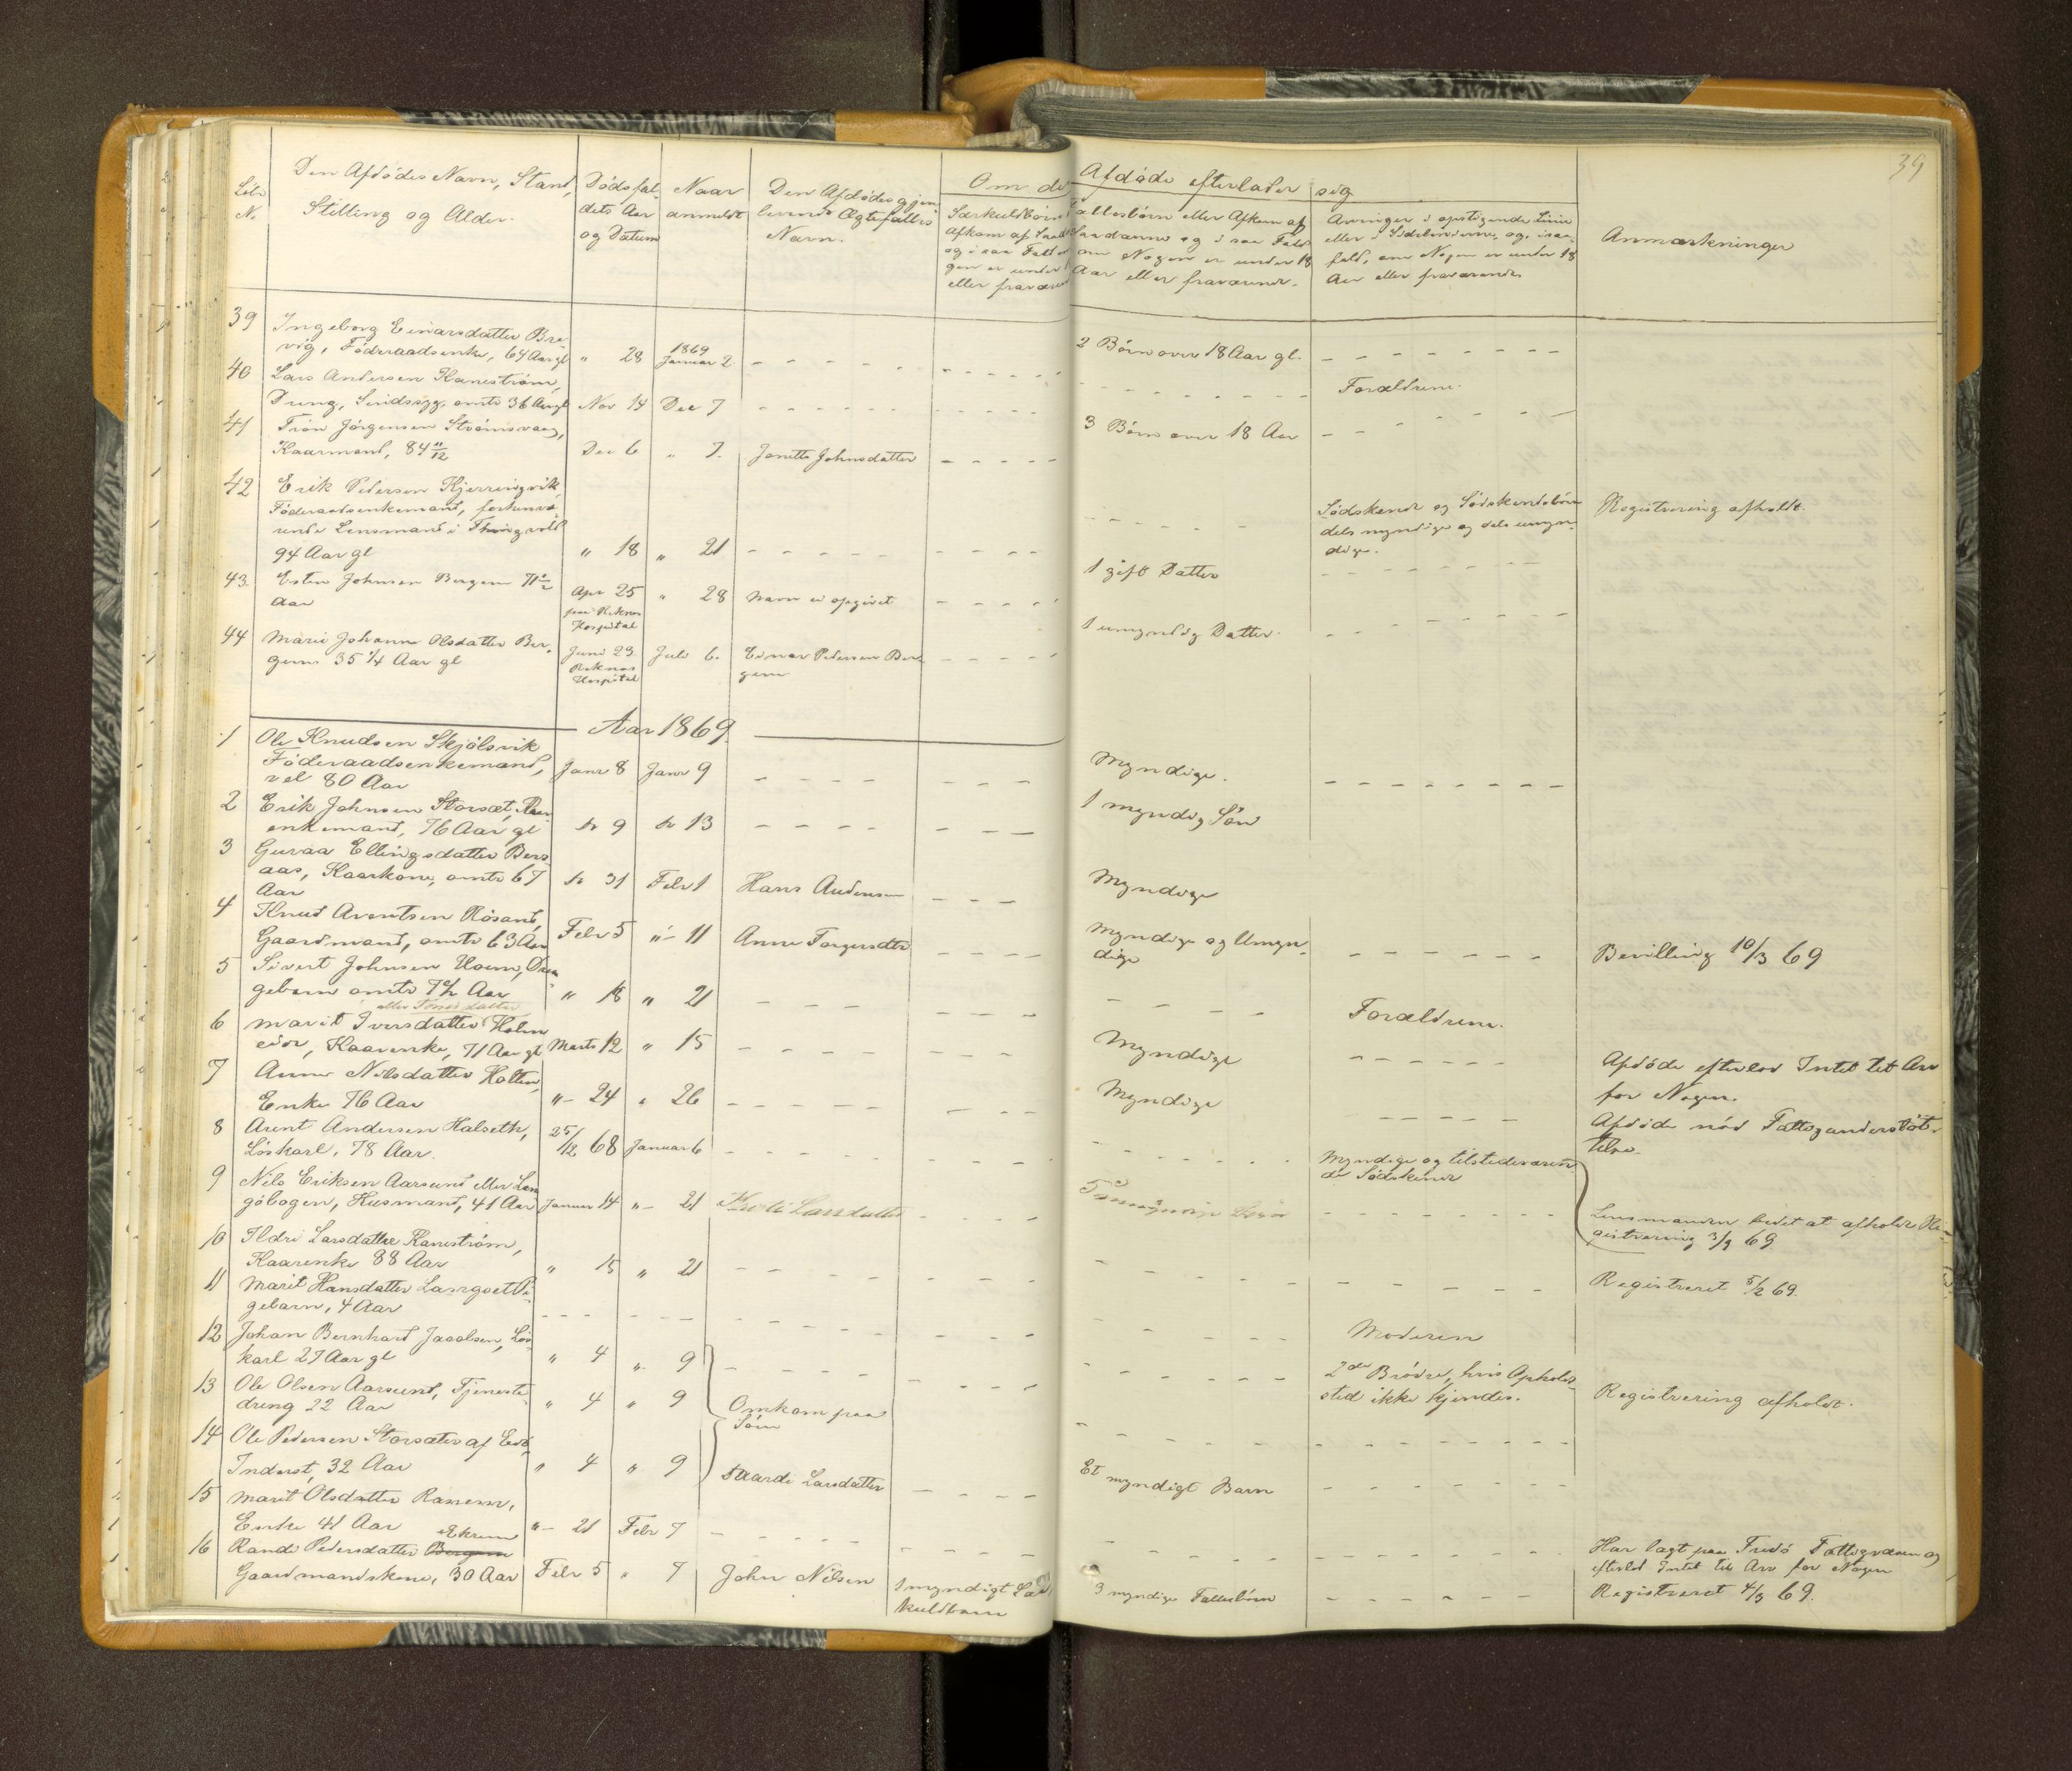 39
Löbe
No
Den Afdödes Navn, Stand,
Stilling og Alder.
Dödsfal-
dets Aar
og Datum
Naar
anmeldt
Den Afdödes gjen-
levende Ægtefælles
Navn.
Om de Afdöde efterlader sig
Særkuldbörn
afkom af
og i saa Fald
gen er under
eller fraværende
Fællesbörn eller Afkom af
Saadanne og i saa Fald
om Nogen er under 18
Aar eller fraværende.
Arvinger i opstigende Linie
eller i Sidelinierne, og i saa-
fald, om Nogen er under 18
Aar eller fraværende
Anmærkninger
39 Ingeborg Einarsdatter Bre-
vig, Föderaadsenke, 64 Aar gl " 28 1869 Januar 2. 2 Börn over 18 Aar gl.
40 Lars Andersen Kanestrøm,
Dreng, Sindssyg, omtr 36 Aar gl Nov 14 Dec 7 Forældrene.
41 Trön Jörgensen Strömsvaag,
Kaarmand, 84 11/12 Dec 6 " 7. Jonette Johnsdatter 3 Börn over 18 Aar
42 Erik Pedersen Kjerringvik
Föderaadsenkemand, forhenvæ-
rende Lensmand i Thingvold
94 Aar gl " 18 " 21 Södskende og Södskendebörn
dels myndige og dels umyn-
dige. Registrering afholdt.
43. Esten Johnsen Bergem 71 1/2
Aar Apr 25 " 28 Navn ei opgivet 1 gift Datter
paa Reknes
Hospital
44 Marie Johanne Olsdatter Ber-
gem 35 1/4 Aar gl Juni 23 Juli 6. Einar Pedersen Ber-
gem 1 umyndig Datter.
Reknes
Hospital
Aar 1869.
1 Ole Knudsen Skjölsvik
Föderaadsenkemand,
vel 80 Aar Janr 8 Janr 9 Myndige.
2 Erik Johnsen Storsæt, Kaar-
enkemand, 76 Aar gl do 9 do 13 1 myndig Sön
3 Guraa Ellingsdatter Bers-
aas, Kaarkone, omtr 67
Aar do 31 Febr 1 Hans Audensen Myndige
4 Knud Arentsen Rösand,
Gaardmand, omtr 63 Aar Febr 5 "- 11 Anne Torgersdtr Myndige og Umyn-
dige Bevilling 10/3 69
5 Sivert Johnsen Moen, Dren-
gebarn omtr 7 1/2 Aar " 18 " 21 Forældrene.
eller Tönsdatter
6 Marit Iversdatter Holm
eidr, Kaarenke, 71 Aar gl Marts 12 " 15 Myndige Afdöde efterlod Intet til Arv
for Nogen.
7 Anne Nilsdatter Holten,
Enke 76 Aar "- 24 " 26 Myndige Afdöde nöd Fattigunderstöt-
telse.
8 Arent Andersen Halseth,
Löskarl, 78 Aar. 25/12 68 Januar 6 Myndige og tilstedeværen-
de Södskende
9 Nils Eriksen Aarsund eller Lan-
göbogen, Husmand, 41 Aar Januar 14 "- 21 Kirsti Larsdatter Lensmanden bedet at afholde Re-
gistrering 3/3 69
10 Ildri Larsdatter Kaneström,
Kaarenke 88 Aar " 15 " 21 Registreret 5/2 69.
11 Marit Hansdatter Langset Pi-
gebarn, 4 Aar Moderen
12 Johan Bernhard Jacobsen, Lös-
karl 27 Aar gl " 4 " 9 2de Brödre, hvis Opholds-
sted ikke kjendes. Registrering afholdt.
13 Ole Olsen Aarsund, Tjeneste-
dreng 22 Aar " 4 " 9 Omkom paa
Söen
14 Ole Pedersen Storsæter af Edö
Inderst, 32 Aar " 4 " 9 Larsdatter Et myndigt Barn
15 Marit Olsdatter Ranem,
Enke 41 Aar "- 21 Febr 7 Har lagt paa Tustö Fattigvæsen og
efterlod Intet til Arv for Nogen
Ekrem
16 Randi Pedersdatter Bergem
Gaardmandskone, 30 Aar Febr 5 " 7 John Nilsen 1 myndigt Sær-
kuldbarn 3 myndige Fællesbörn Registreret 4/3 69.